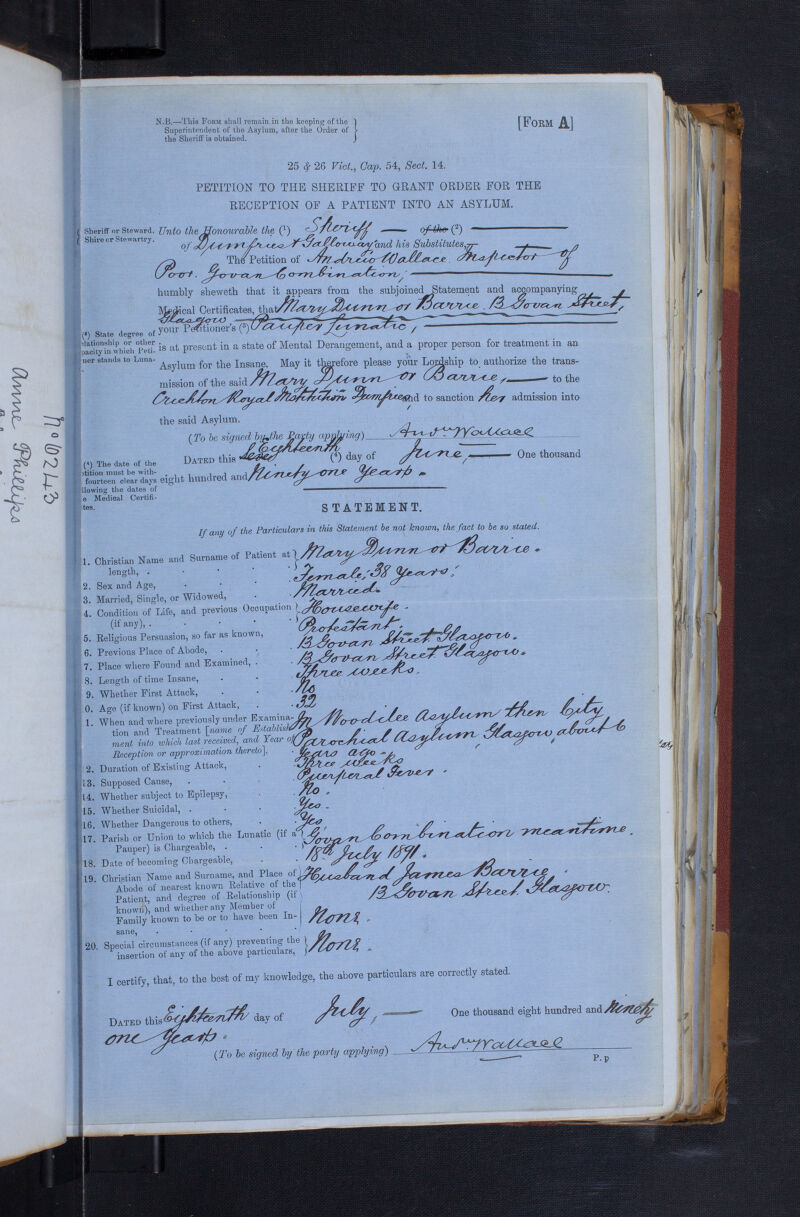 N.B.—This Form shall remain in the keeping of the
Superintendent of the Asylum, after the Order of
the Sheriff is obtained.
[Form A]
25 & 26 Vict., Cap. 54, Sect. 14.
PETITION TO THE SHERIFF TO GRANT ORDER FOR THE
RECEPTION OF A PATIENT INTO AN ASYLUM.
Sheriff or Steward.
Shire or Stewartry.
Unto the Honourable the (1) Sheriff — of the (2) —
of Dumfries & Galloway and his Substitutes,
The Petition of Andrew Wallace Inspector of
Poor. Govan Combination, —
humbly sheweth that it appears from the subjoined Statement and accompanying
Medical Certificates, that Mary Dunn or Barrie 13 Govan Street,
Glasgow
your Petitioner's (3) Pauper Lunatic, —
(3) State degree of
elationship or other
pacity in which Peti-
ner stands to Luna-
is at present in a state of Mental Derangement, and a proper person for treatment in an
Asylum for the Insane. May it therefore please your Lordship to authorize the trans-
mission of the said Mary Dunn or Barrie, — to the
Crichton Royal Institution Dumfries and to sanction her admission into
the said Asylum.
(To be signed by the Party applying) Andw Wallace
Dated this Eighteenth (4) day of June, — One thousand
eight hundred and Ninety one Years.
(4) The date of the
etition must be with-
fourteen clear days
llowing the dates of
e Medical Certifi-
tes.
STATEMENT.
If any of the Particulars in this Statement be not known, the fact to be so stated.
1. Christian Name and Surname of Patient at
length, . Mary Dunn or Barrie.
2. Sex and Age, Female; 38 Years.
3. Married, Single, or Widowed, Married.
4. Condition of Life, and previous Occupation
(if any), . Housewife.
5. Religious Persuasion, so far as known, Protestant.
6. Previous Place of Abode, 13 Govan Street Glasgow.
7. Place where Found and Examined, 13 Govan Street Glasgow.
8. Length of time Insane, Three weeks.
9. Whether First Attack, No
0. Age (if known) on First Attack, 32
1. When and where previously under Examina-
tion and Treatment [name of Establish-
ment into which last received, and Year of
Reception or approximation thereto].
In Woodilee Asylum then City
Parochial Asylum Glasgow, about 6
Years ago.
12. Duration of Existing Attack, Three weeks
13. Supposed Cause, Puerperal Fever.
14. Whether subject to Epilepsy, No.
15. Whether Suicidal, Yes.
16. Whether Dangerous to others, Yes
17. Parish or Union to which the Lunatic (if a
Pauper) is Chargeable, . Govan Combination meantime.
18. Date of becoming Chargeable, 18th July 1891.
19. Christian Name and Surname, and Place of
Abode of nearest known Relative of the
Patient, and degree of Relationship (if
known), and whether any Member of
Family known to be or to have been In-
sane,
Husband James Barrie.
13 Govan Street Glasgow.
None.
20. Special circumstances (if any) preventing the
insertion of any of the above particulars, None.
I certify, that, to the best of my knowledge, the above particulars are correctly stated.
Dated this Eighteenth day of July, — One thousand eight hundred and Ninety
one Years.
(To be signed by the party applying) Andw Wallace
P. p
No 6243
Anne Phillips